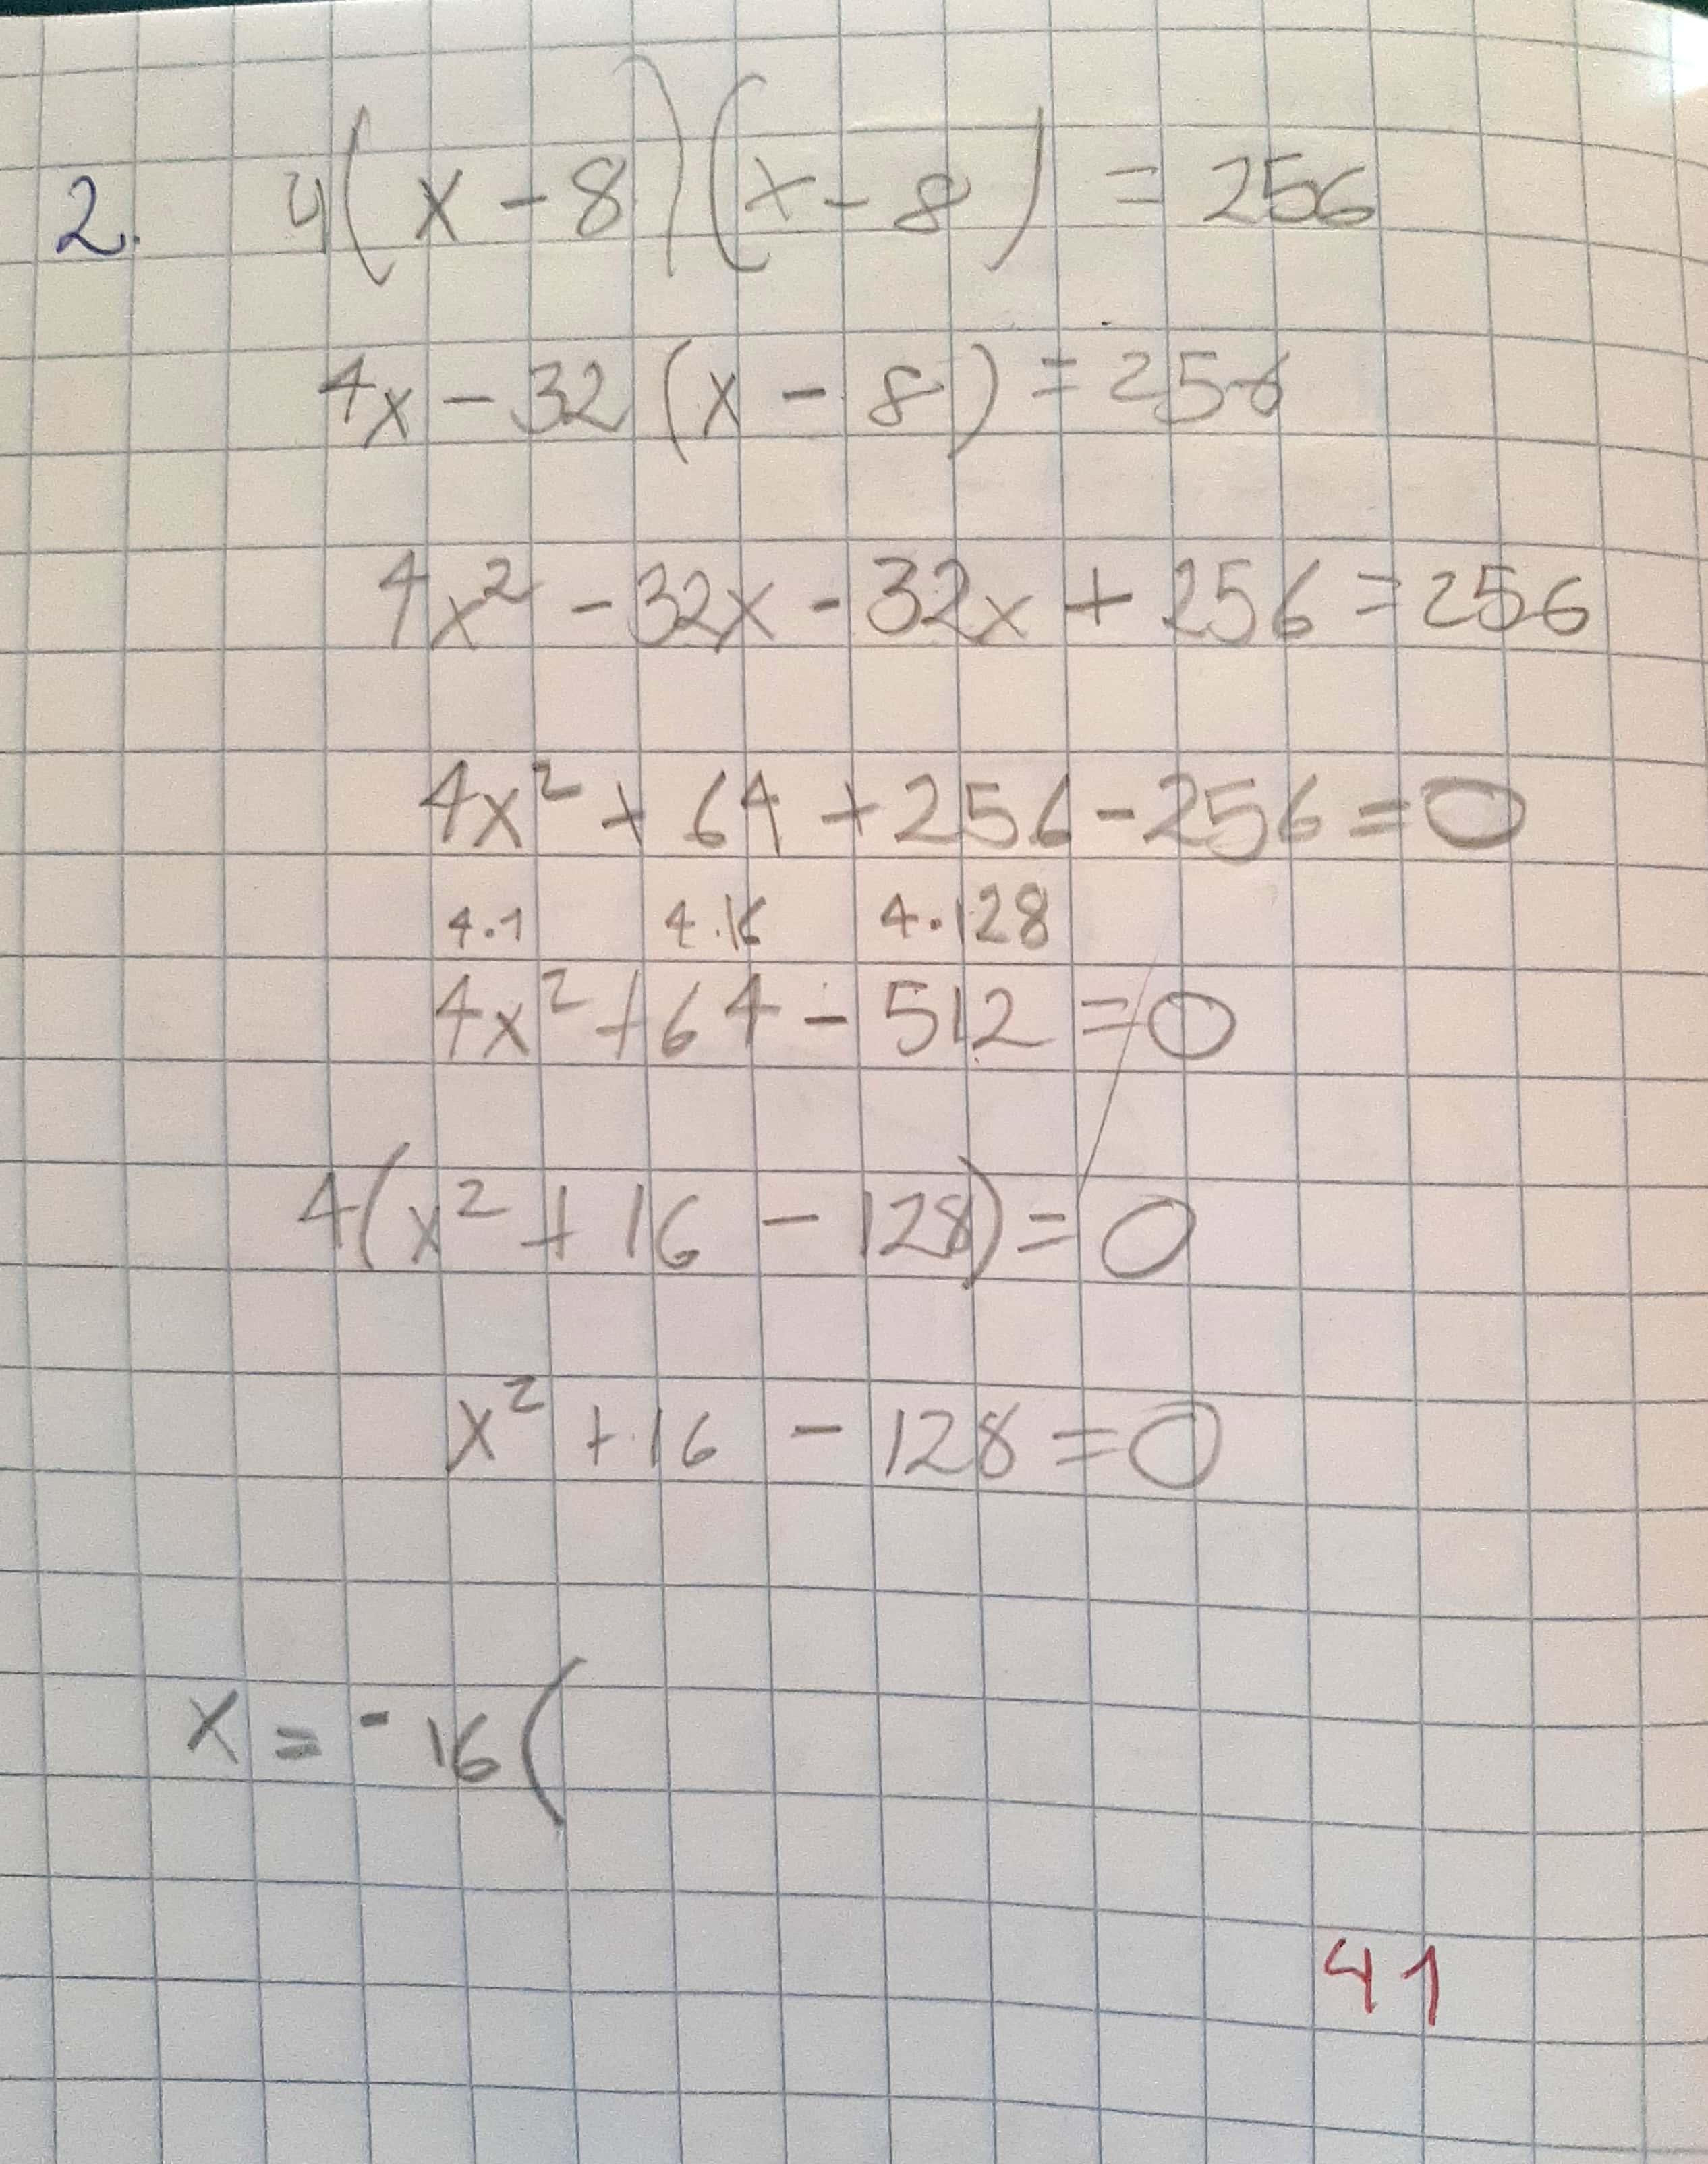 2. 4(x-8)(x-8) = 256
4x - 32 (x - 8) = 256
4x² - 32x - 32x + 256 = 256
4x² + 64 + 256 - 256 = 0
4.1 4.16 4.128
4x² + 64 - 512 = 0
4(x² + 16 - 128) = 0
x² + 16 - 128 = 0
x = - 16 (
41